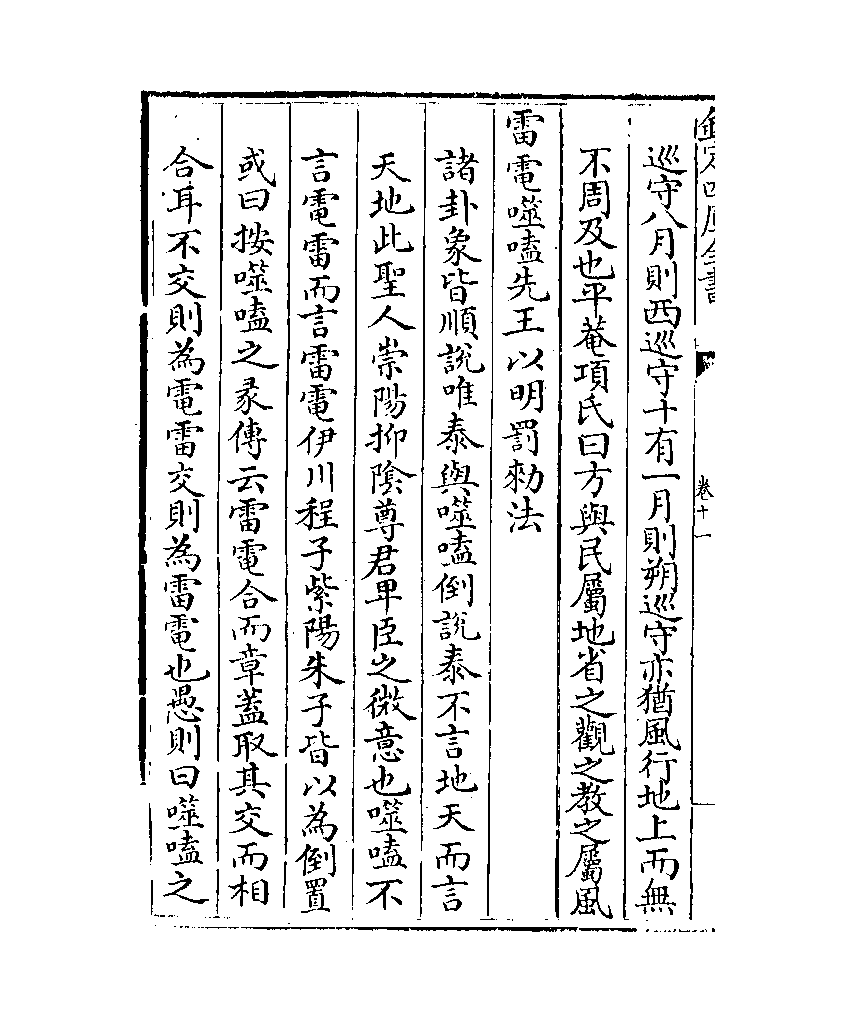 欽定四庫全書
卷十一
巡守八月則西巡守十有一月則朔巡守亦猶風行地上而無
不周及也平菴項氏曰方與民屬地省之觀之教之屬風
雷電噬嗑先王以明罰勑法
諸卦象皆順說唯泰與噬嗑倒說泰不言地天而言
天地此聖人崇陽抑陰尊君卑臣之微意也噬嗑不
言電雷而言雷電伊川程子紫陽朱子皆以為倒置
或曰按噬嗑之彖傳云雷電合而章蓋取其交而相
合耳不交則為電雷交則為雷電也愚則曰噬嗑之